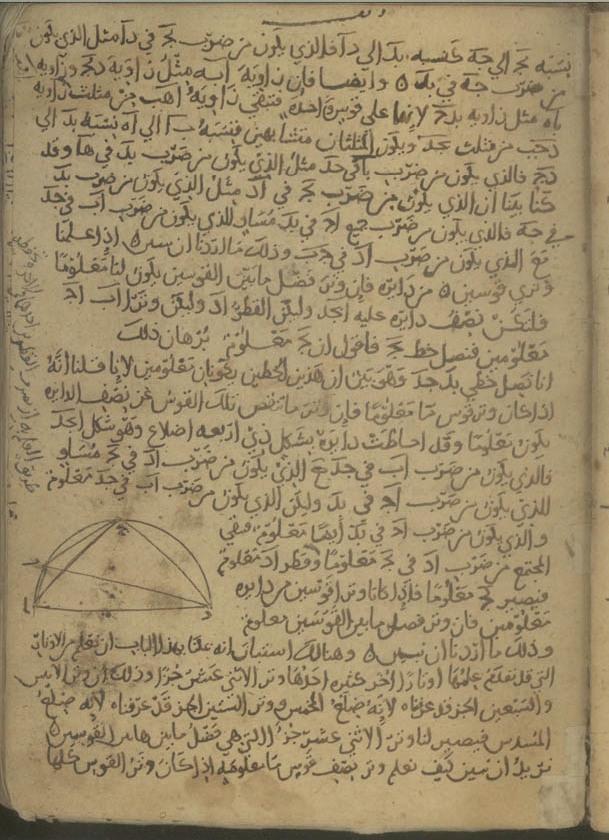 نسبة بجـ الى جه كنسبة بد الى دا فالذي يكون من ضرب بجـ في دا مثل الذي يكون
من ضرب جه في بد وايضا فان زاوية ابه مثل زاوية دبجـ وزاوية
باه مثل زاوية بدجـ لانها على قوس واحدة فتبقى زاوية اهب من مثلث
دجب من مثلث بجد ويكون المثلثان متشابهين فنسبة با الى اه نسبة بد الى
دجـ فالذي يكون من ضرب با في جد مثل الذي يكون من ضرب بد في ها وقد
كنا بينا ان الذي يكون من ضرب بجـ في اد مثل الذي يكون من ضرب بد
في جه فالذي يكون من ضرب جميع اجـ في بد مساو للذي يكون من ضرب اب في جد
مع الذي يكون من ضرب اد في جب وذلك ما اردنا ان نبين اذا علمنا
وتري قوسين من دايره فان وتر فضل ما بين القوسين يكون لنا معلوما
فلنخن نصف دايره عليه ابجد وليكن القطر اد وليكن وترا اب اجـ
معلومين فنصل خط بجـ فاقول ان بجـ معلوم برهان ذلك
انا نصل خطي بد جد وهو بين ان هذين الخطين يكونان معلومين لانا قلنا انه
اذا كان وتر قوس ما معلوما فان وتر ما تنقص تلك القوس عن نصف الدايره
يكون معلوما وقد احاطت دايرة بشكل ذي اربعة اضلاع وهو شكل ابجد
فالذي يكون من ضرب اب في جد مع الذي يكون من ضرب اد في بجـ مساو
للذي يكون من ضرب اجـ في بد ولكن الذي يكون من ضرب اب في جد معلوم
والذي يكون من ضرب اجـ في بد ايضا معلوم فيبقى
المجتمع من ضرب اد في بجـ معلوما وقطر اد معلوم
فيصير بجـ معلوما فاذا كانا وترا قوسين من دايره
معلومين فان وتر فضل ما بين القوسين معلوم
وذلك ما اردنا ان نبين وهنالك استبان انه علمنا بهذا الباب ان نعلم من الاوتار
التي قد تقدم علمها اوتارا اخر كثيره احدها وتر الاثني عشر جزا وذلك ان وتر
والسبعين الجز قد عرفناه لانه ضلع المخمس ووتر الستين الجز قد عرفناه لانه ضلع
المسدس فيصير لنا وتر الاثني عشر جزا التي هي فضل ما بين هاتين القوسين
نريد ان نبين كيف نعلم وتر نصف قوس ما معلومه اذا كان وتر القوس كلها